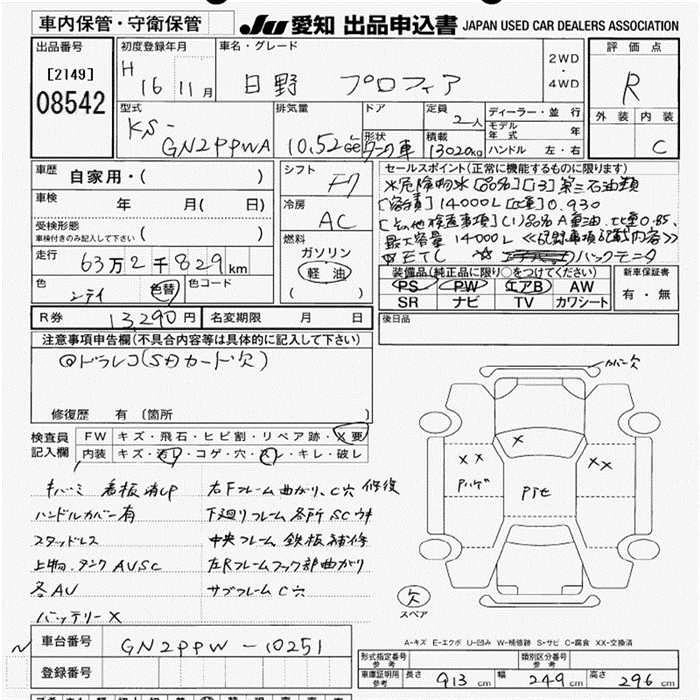 車内保管・守衛保管
JU 愛知 出品申込書 JAPAN USED CAR DEALERS ASSOCIATION
出品番号
[2149]
08542
初度登録年月
H 16 11月
車名・グレード
日野 プロフィア
2WD
・
4WD
評価点
R
外装 内装
C
型式
KS-
GN2PPWA
排気量
10.52
ドア
形状
タンク車
定員
2人
積載
13020kg
ディーラー・並行
モデル年式 年
ハンドル 左・右
車歴
自家用・( )
車検
年 月( 日)
受検形態
車検付きのみ記入して下さい ( )
走行
63万2千829km
色
色替
色コード
シフト
F7
冷房
AC
燃料
ガソリン
軽油
( )
セールスポイント(正常に機能するものに限ります)
※危険物※[品名][13]第三石油類
[容量]14000L[比重]0.930
[その他検査事項](1)品名A重油、比重0.85、
最大容量 14000L≪記載事項記載内容≫
ETC ☆ バックモニタ
装備品(純正品に限り○をつけてください)
PS PW エアB AW
SR ナビ TV カワシート
新車保証書
有・無
R券 13,290円
名変期限 月 日
後日品
注意事項申告欄(不具合内容等は具体的に記入して下さい)
@ドラレコ(SDカード欠)
修復歴 有(箇所 )
検査員
記入欄
FW キズ・飛石・ヒビ割・リペア跡・X要
内装 キズ・汚れ・コゲ・穴・スレ・キレ・破レ
キバミ 看板消しP
ハンドルカバー有
スタッドレス
上物、タンク AVSC
各AU
バッテリーX
右Fフレーム曲がり、C穴 修復
下廻りフレーム各所SCウキ
中央フレーム鉄板補修
左Rフレームフック部曲がり
サブフレームC穴
カバー欠
X
XX
Pハゲ
XX
欠
スペア
A-キズ E-エクボ U-凹み W-補修跡 S-サビ C-腐食 XX-交換済
車台番号 GN2PPW-10251
登録番号
形式指定番号
参考
類別区分番号
参考
車庫証明用
参考
長さ 913 cm
幅 249 cm
高さ 296 cm